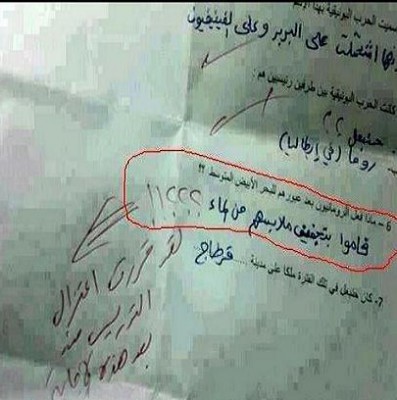 سميت الحرب البونيقية بهذا الإسم
لأنها اشتملت على البربر وعلى الفينيقيون
كانت الحرب البونيقية بين طرفين رئيسيين هم :
حنبعل ؟؟
روما (في إيطاليا)
6 – ماذا فعل الرومانيون بعد عبورهم للبحر الأبيض المتوسط ؟؟
قاموا بتجفيف ملابسهم من الماء ؟؟؟!!
7- كان حنبعل في تلك الفترة ملكا على مدينة ..... قرطاج..
لقد قررت اعتزال
التدريس منذ
بعد هذه الإجابة